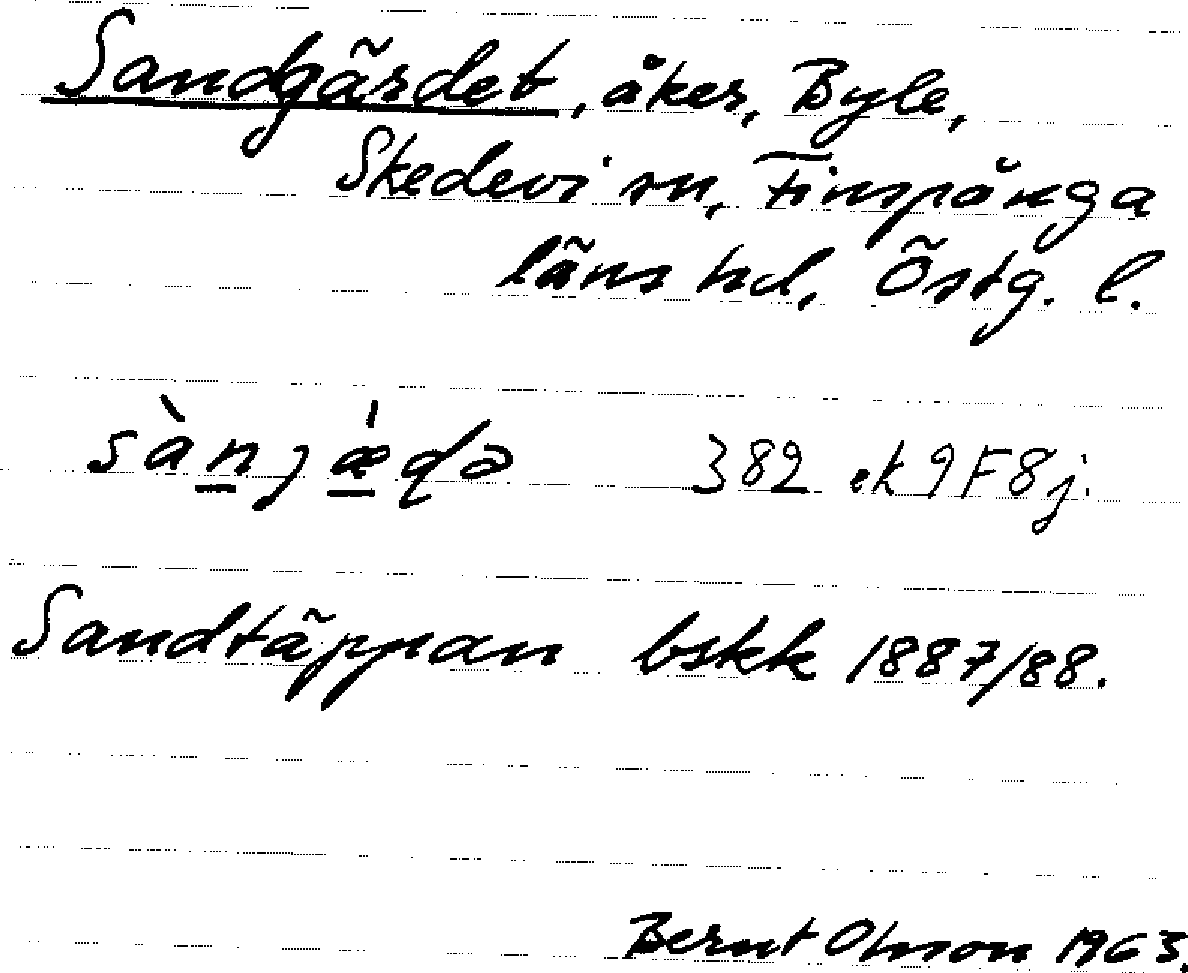 Sandgärdet, åker, Byle,
Skedevi sn, Finspånga
läns hd, Östg. l.
sàn̲ȷæ̲̍ɖə 382 ek 9F8j.
Sandtäppan bskk 1887/88.
Bernt Olsson 1963.